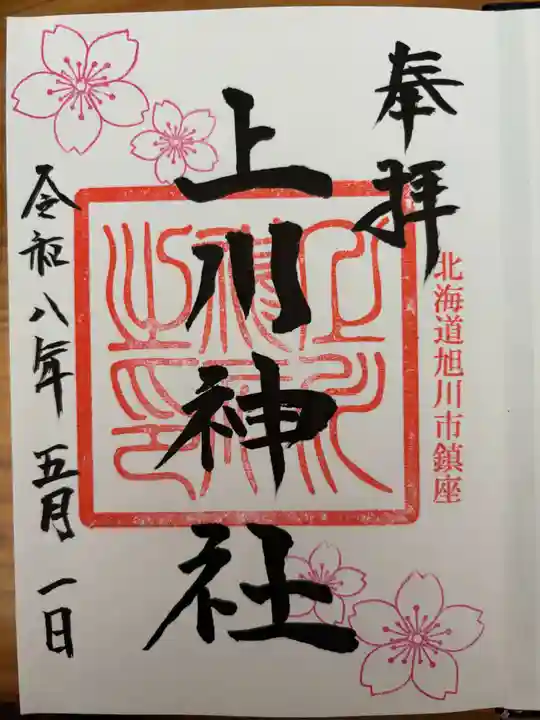 奉拝
北海道旭川市鎮座
上川神社
令和八年 五月 一日